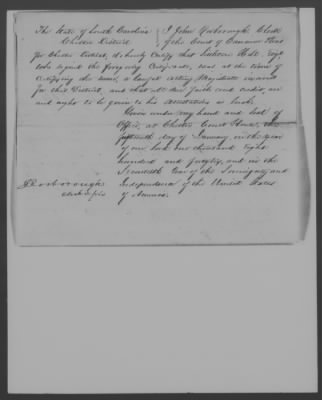 The State of South Carolina } I John Rosborough, Clerk
Chester District } of the Court of Common Pleas
for Chester District, do hereby Certify that Hill, Esqr
who signed the foregoing Certificate, was at the time of
Certifying the same, a Magistrate in and
for this District, and that due faith and credit, are
and ought to be given to his attestations as such.
Given under my hand and Seal of
Office, at Chester Court House, this
fifteenth day of January, in the year
of our Lord one thousand Eight
hundred and and in the
Seventieth Year of the Sovereignty and
J Rosborough Independence of the United States
Clerk of America.